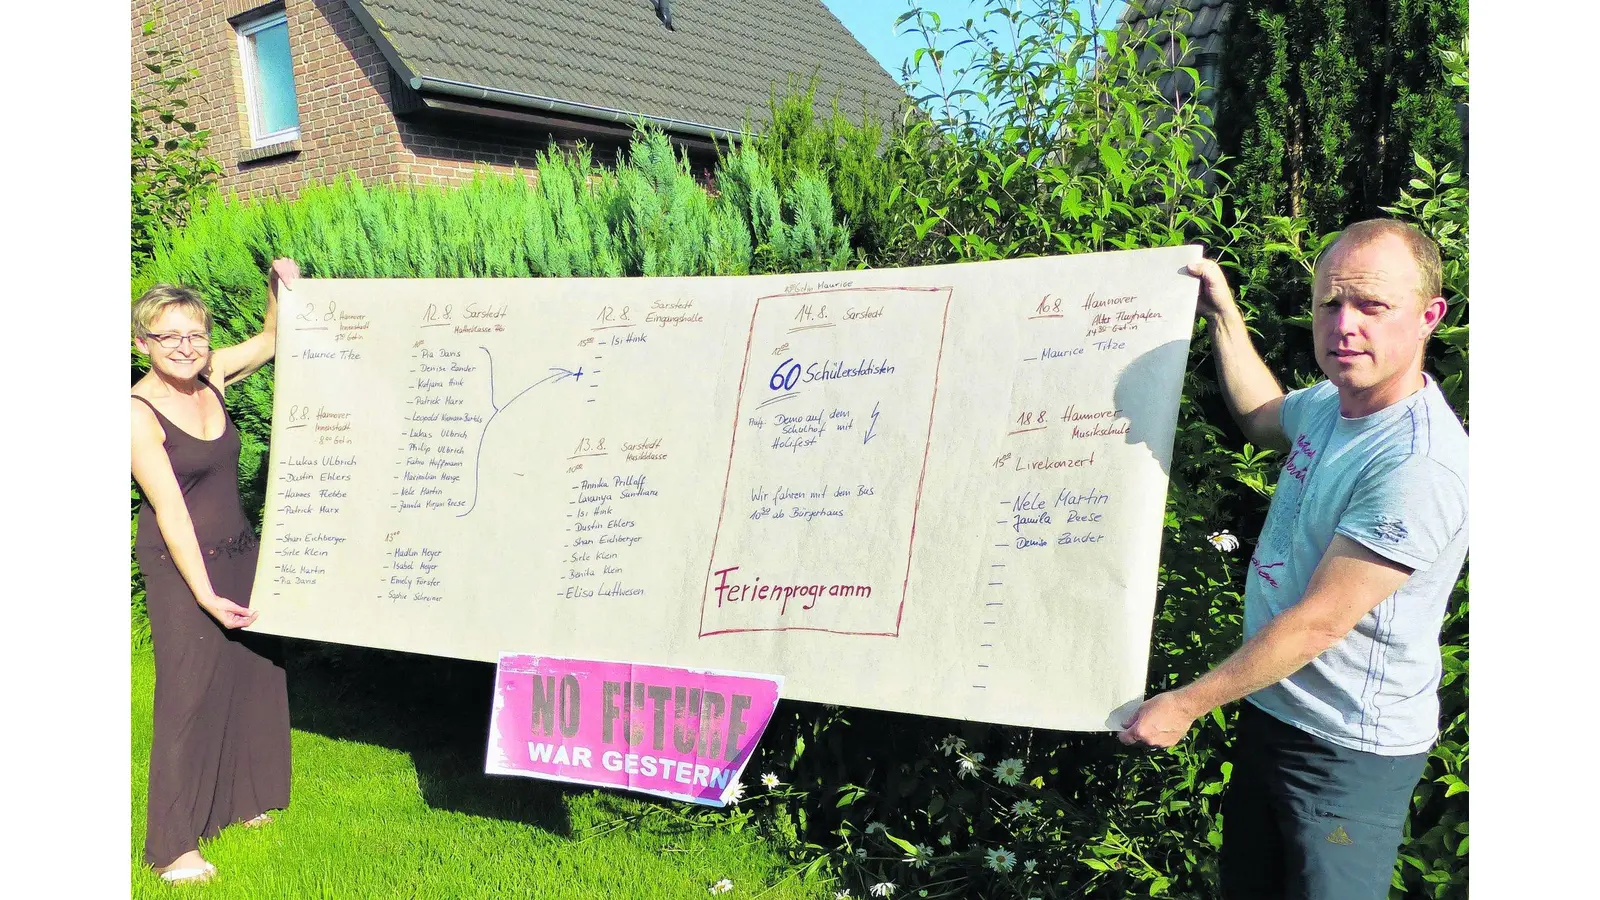 2.8. Hannover
Innenstadt
- Maurice Titze
8.8. Hannover
Innenstadt
- Lukas Ulbrich
- Dustin Ehlers
- Hannes Flebbe
- Patrick Marx
-
- Shari Eichberger
- Sirle Klein
- Nele Martin
- Pia Davis
-
12.8. Sarstedt
- Pia Davis
- Denise Zander
- Katjana Hink
- Patrick Marx
- Leopold
- Lukas Ulbrich
- Philip Ulbrich
- Fabio Hoffmann
- Maximilian
- Nele Martin
- Jamila Mirjam Reese
13⁰⁰
- Madlin Meyer
- Isabel Meyer
- Emely Förster
- Sophie Schreiner
12.8. Sarstedt
Eingangshalle
15⁰⁰ - Isi Hink
-
+ -
-
-
13.8. Sarstedt
Musikklasse
10⁰⁰
- Annika Prilloff
- Lavanya
- Isi Hink
- Dustin Ehlers
- Shari Eichberger
- Sirle Klein
- Benita Klein
- Elisa Luttwesen
Maurice
14.8. Sarstedt
60 Schülerstatisten
Demo auf dem
Schulhof mit
Holifest
Wir fahren mit dem Bus
10³⁰ ab Bürgerhaus
Ferienprogramm
16.8. Hannover
Alter Flughafen
- Maurice Titze
18.8. Hannover
Musikschule
15⁰⁰ Livekonzert
- Nele Martin
- Jamila Reese
- Denise Zander
NO FUTURE
WAR GESTERN!